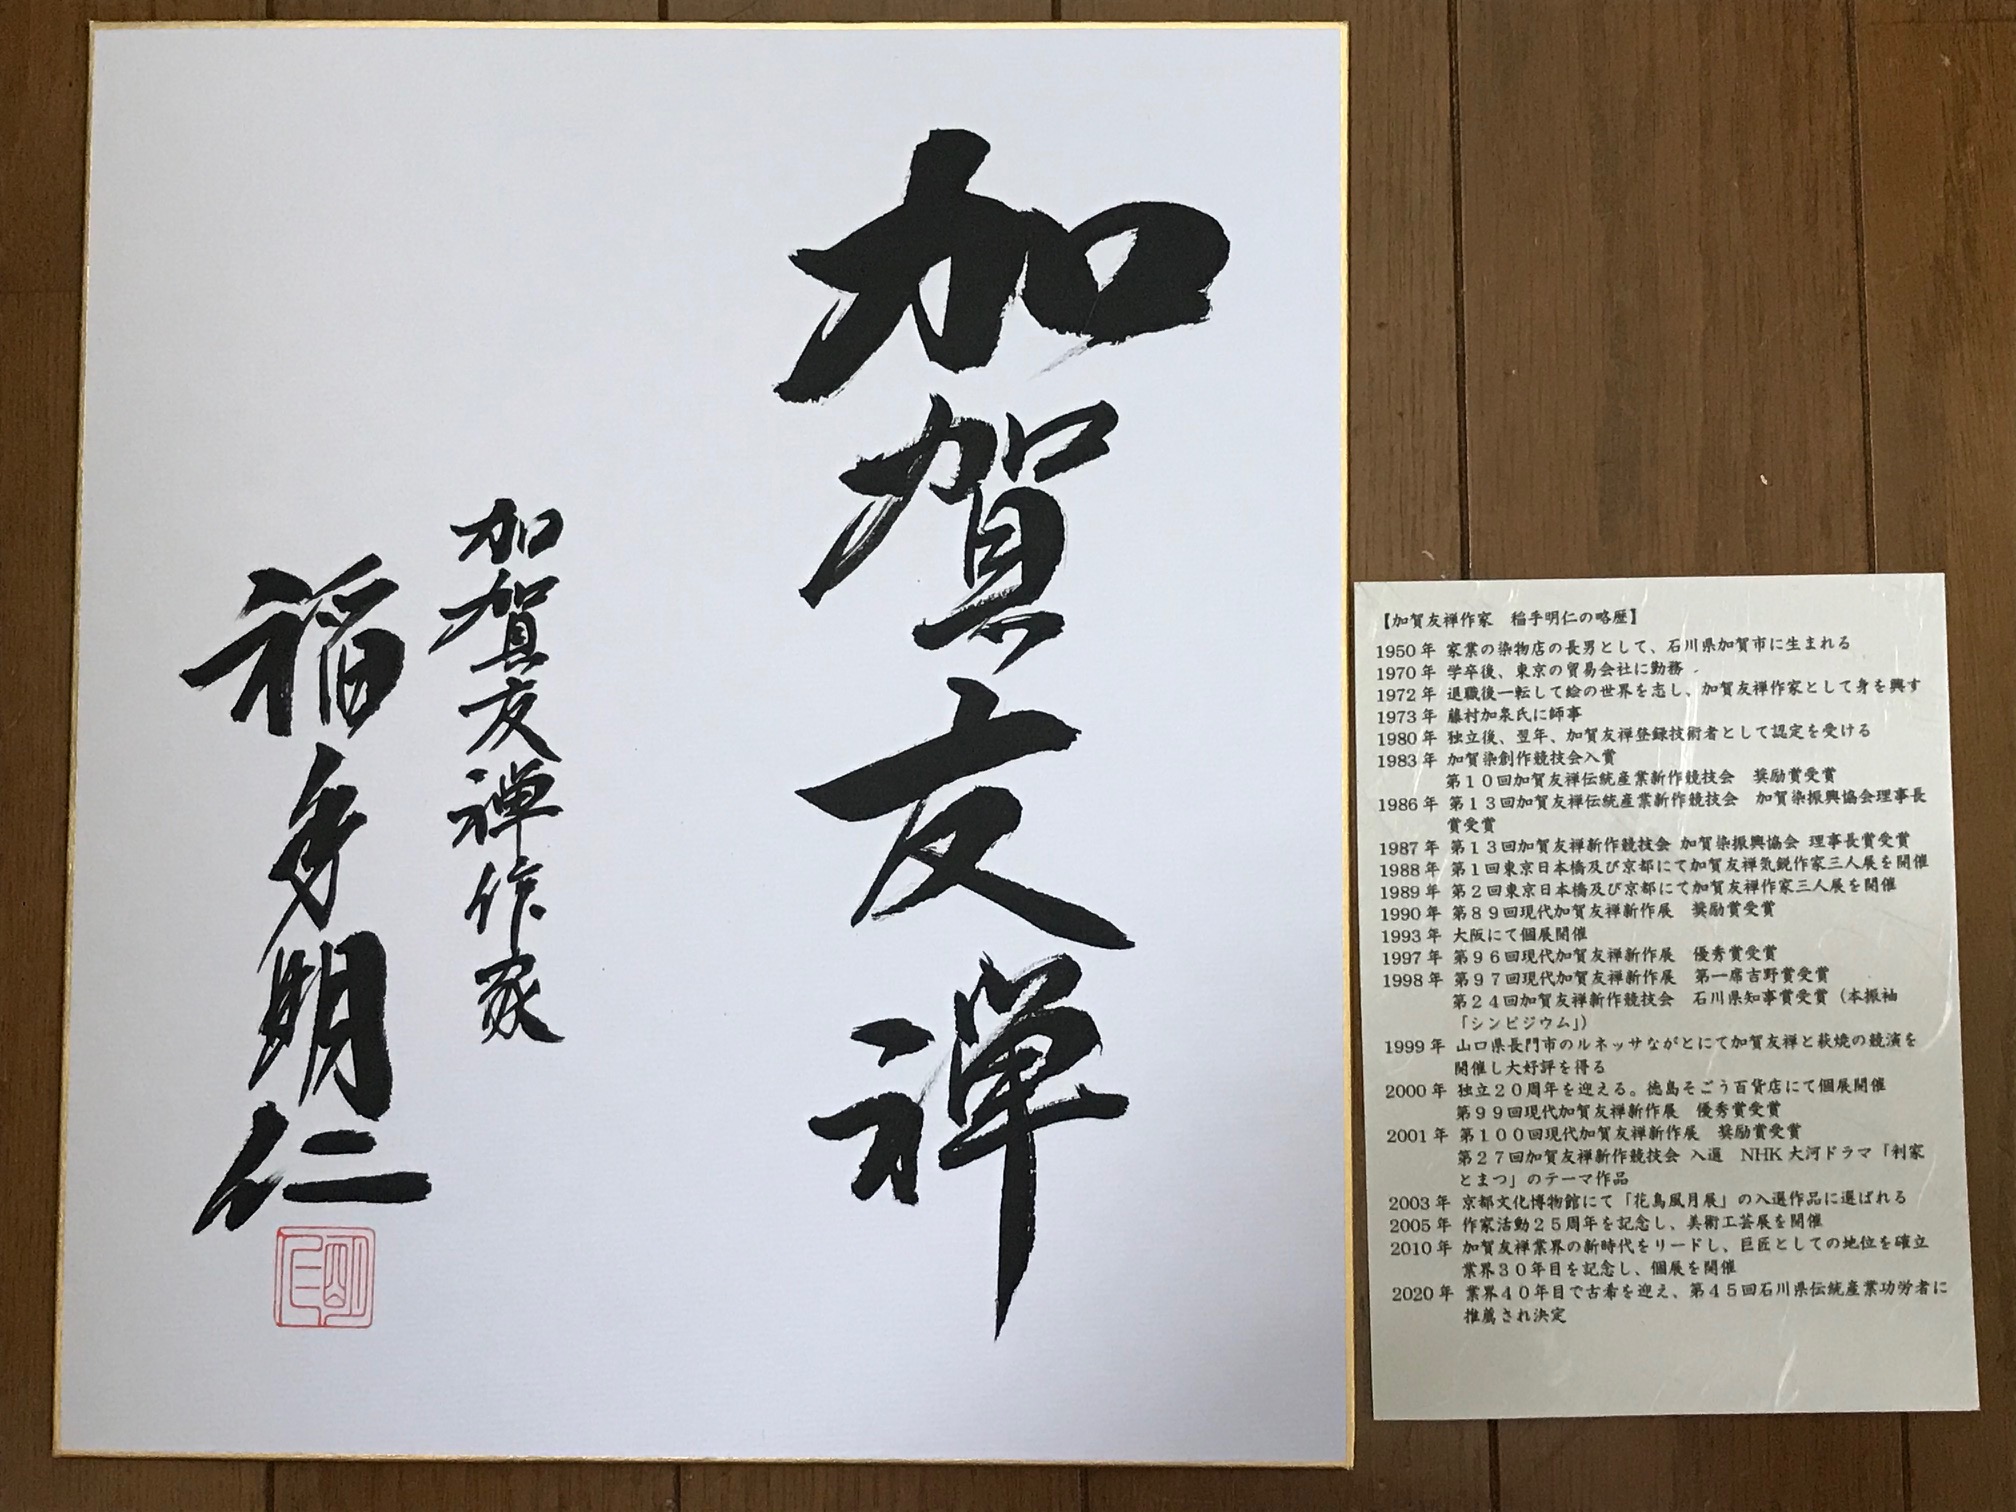 加賀友禅
加賀友禅作家
稲手明仁
明仁
【加賀友禅作家　稲手明仁の略歴】
1950年 家業の染物店の長男として、石川県加賀市に生まれる
1970年 学卒後、東京の貿易会社に勤務
1972年 退職後一転して絵の世界を志し、加賀友禅作家として身を興す
1973年 藤村加泉氏に師事
1980年 独立後、翌年、加賀友禅登録技術者として認定を受ける
1983年 加賀染創作競技会入賞
第１０回加賀友禅伝統産業新作競技会　奨励賞受賞
1986年 第１３回加賀友禅伝統産業新作競技会　加賀染振興協会理事長
賞受賞
1987年 第１３回加賀友禅新作競技会 加賀染振興協会 理事長賞受賞
1988年 第１回東京日本橋及び京都にて加賀友禅気鋭作家三人展を開催
1989年 第２回東京日本橋及び京都にて加賀友禅作家三人展を開催
1990年 第８９回現代加賀友禅新作展　奨励賞受賞
1993年 大阪にて個展開催
1997年 第９６回現代加賀友禅新作展　優秀賞受賞
1998年 第９７回現代加賀友禅新作展　第一席吉野賞受賞
第２４回加賀友禅新作競技会　石川県知事賞受賞（本振袖
「シンビジウム」）
1999年 山口県長門市のルネッサながとにて加賀友禅と萩焼の競演を
開催し大好評を得る
2000年 独立２０周年を迎える。徳島そごう百貨店にて個展開催
第９９回現代加賀友禅新作展　優秀賞受賞
2001年 第１００回現代加賀友禅新作展　奨励賞受賞
第２７回加賀友禅新作競技会 入選　NHK大河ドラマ「利家
とまつ」のテーマ作品
2003年 京都文化博物館にて「花鳥風月展」の入選作品に選ばれる
2005年 作家活動２５周年を記念し、美術工芸展を開催
2010年 加賀友禅業界の新時代をリードし、巨匠としての地位を確立
業界３０年目を記念し、個展を開催
2020年 業界４０年目で古希を迎え、第４５回石川県伝統産業功労者に
推薦され決定